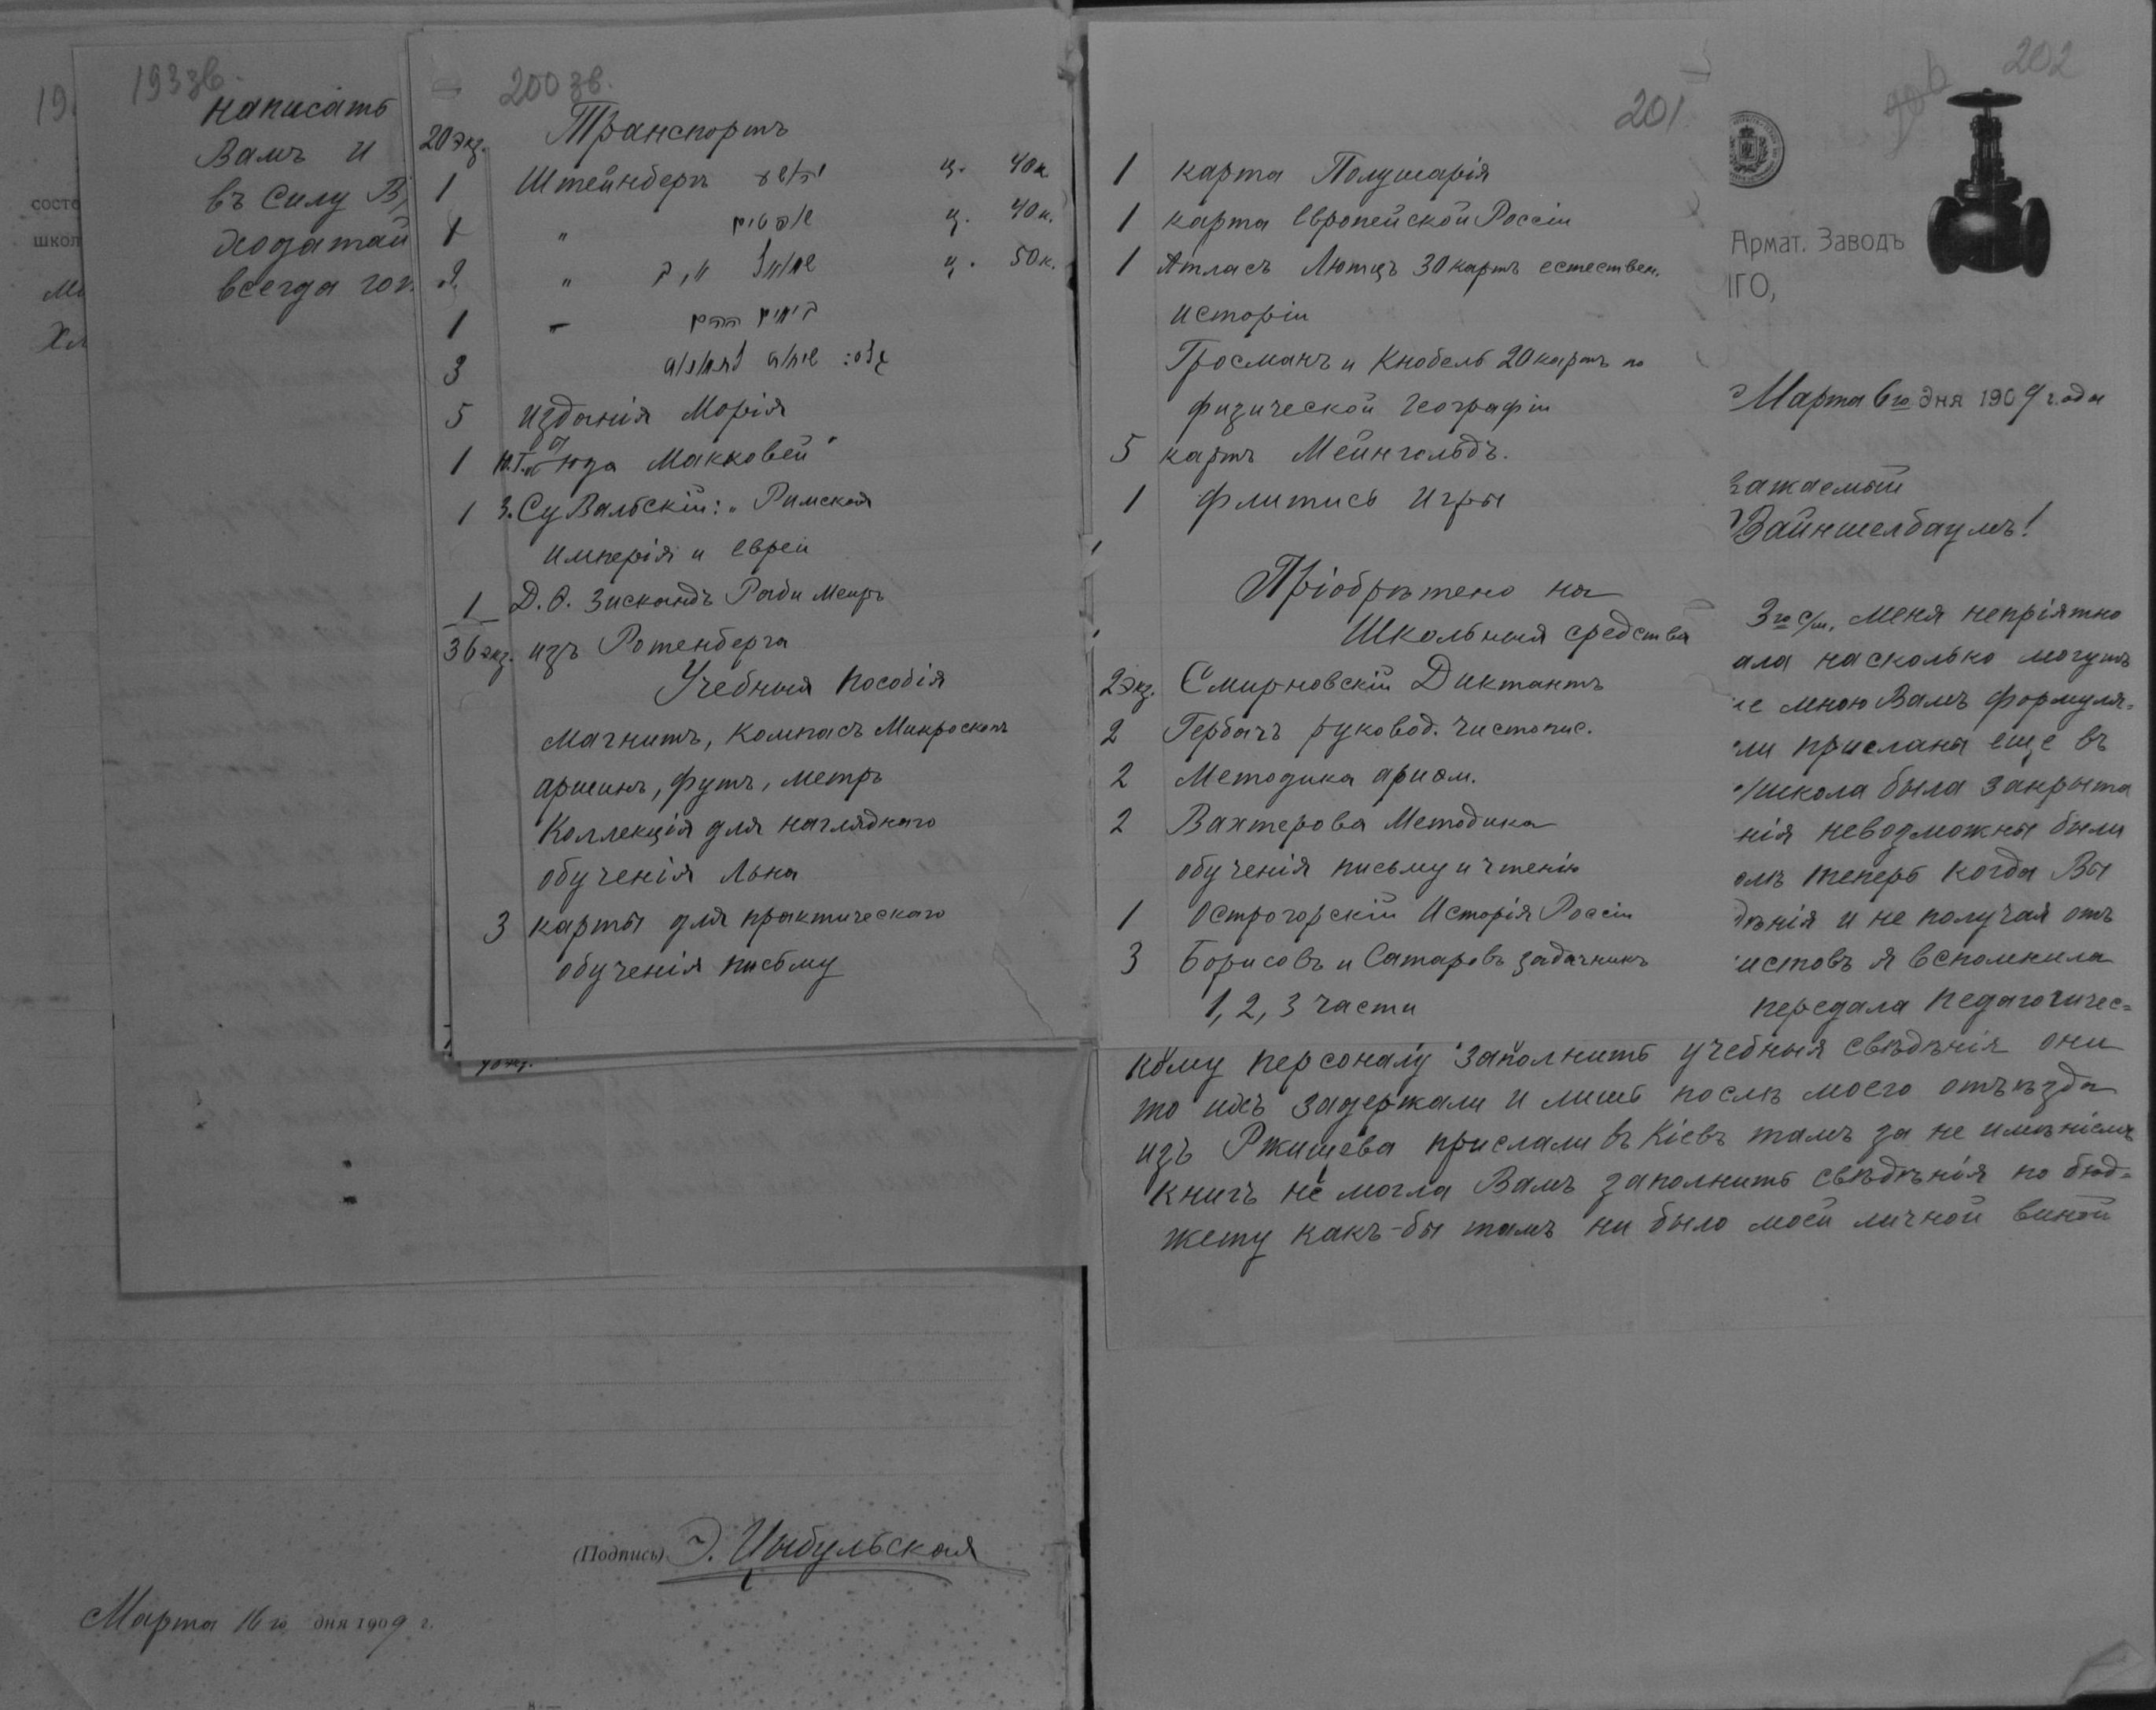 193 зв.
написать
Вамъ и
въ силу В
ходатай
всегда гот
состо
школ
200 зв.
20 экз. Транспортъ
1 Штейнбергъ ц. 40 к.
1 " ц. 40 к.
2 " ц. 50 к.
1
3
5 изданія Морія
1 Юда Маккавей"
1 З. Сувальскій: „ Римская
имперія и евреи
1 Д. О. Зискандъ Раби Меиръ
36 экз. изъ Ротенберга
Учебныя пособія
магнитъ, компасъ Микроскопъ
аршинъ, футъ, метръ
Коллекція для нагляднаго
обученія Льна
3 карты для практическаго
обученія письму
(Подпись) Э. Цыбульская
Марта 16го дня 1909 г.
201
1 карта Полушарія
1 карта Европейской Россіи
1 Атласъ Лютцъ 30 картъ естествен.
исторіи
Гросманъ и Кнобель 20 картъ по
физической географіи
5 картъ Мейнгольдъ.
1 игры
Пріобрѣтено на
Школьныя средства
2 экз. Смирновскій Диктантъ
2 Гербачъ руковод. чистопис.
2 Методика ариѳм.
2 Вахтерова Методика
обученія письму и чтенію
1 Острогорскій Исторія Россіи
3 Борисовъ и Сатаровъ задачникъ
1, 2, 3 части
202
Армат. Заводъ
ІГО,
Марта 6го дня 1909 года
важаемый
Вайншелбаумъ!
3го с/м, меня непріятно
ала насколько могутъ
ие мною Вамъ формуля-
ли присланы еще въ
школа была закрыта
нія невозможны были
омъ теперь когда Вы
дѣнія и не получая отъ
истовъ я вспомнила
передала педагогичес=
кому персоналу заполнить учебныя свѣдѣнія они
то ихъ задержали и лишь послѣ моего отъѣзда
изъ Ржищева прислали въ Кіевъ тамъ за не имѣніемъ
книгъ не могла Вамъ заполнить свѣдѣнія по бюд-
жету какъ-бы тамъ ни было моей личной виной